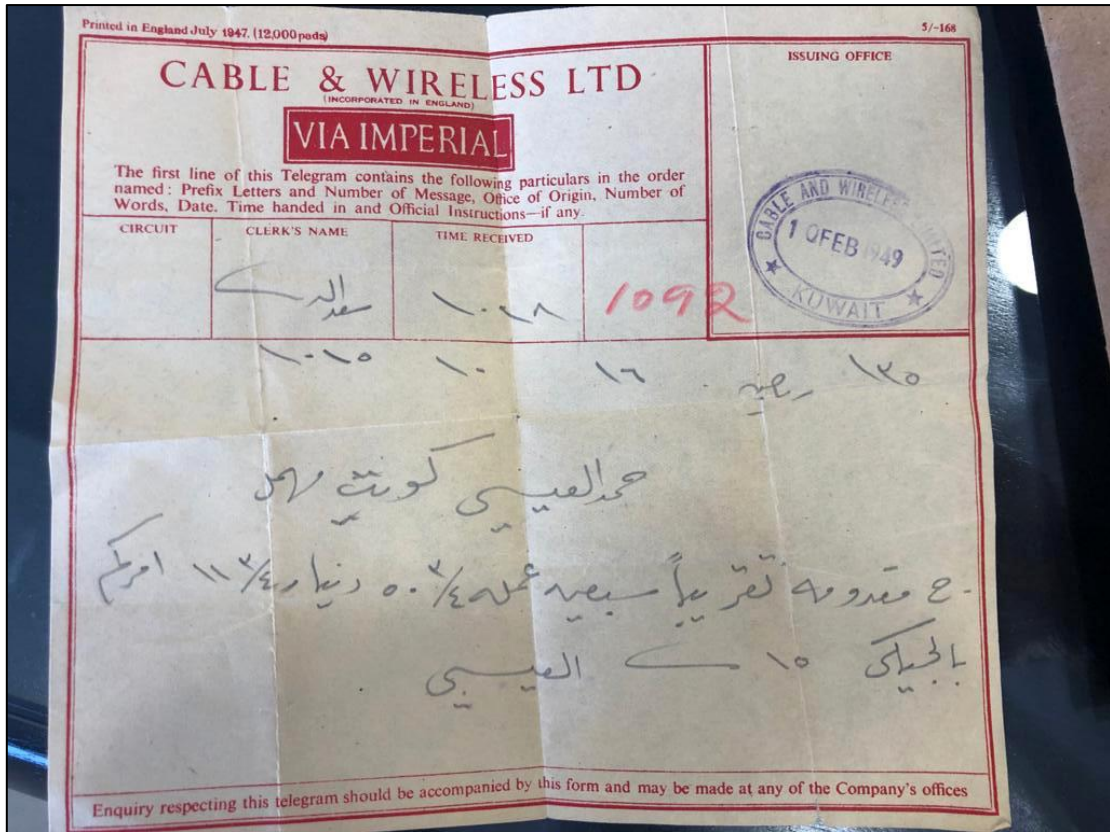 Printed in England July 1947. (12,000 pads)
5/-168
CABLE & WIRELESS LTD
(INCORPORATED IN ENGLAND)
VIA IMPERIAL
The first line of this Telegram contains the following particulars in the order
named: Prefix Letters and Number of Message, Office of Origin, Number of
Words, Date. Time handed in and Official Instructions—if any.
ISSUING OFFICE
CABLE AND WIRELESS LIMITED
10 FEB 1949
KUWAIT
CIRCUIT
CLERK'S NAME
TIME RECEIVED
١٠١٨
1092
١٣٥ ١٦ ١٠ ١٠١٥
حمد العيسى كويت
تقريباً سبعين عمله ٥٠ ٣/٤ دينار ١١ ٣/٤ امركم
١٥ العيسى
Enquiry respecting this telegram should be accompanied by this form and may be made at any of the Company's offices